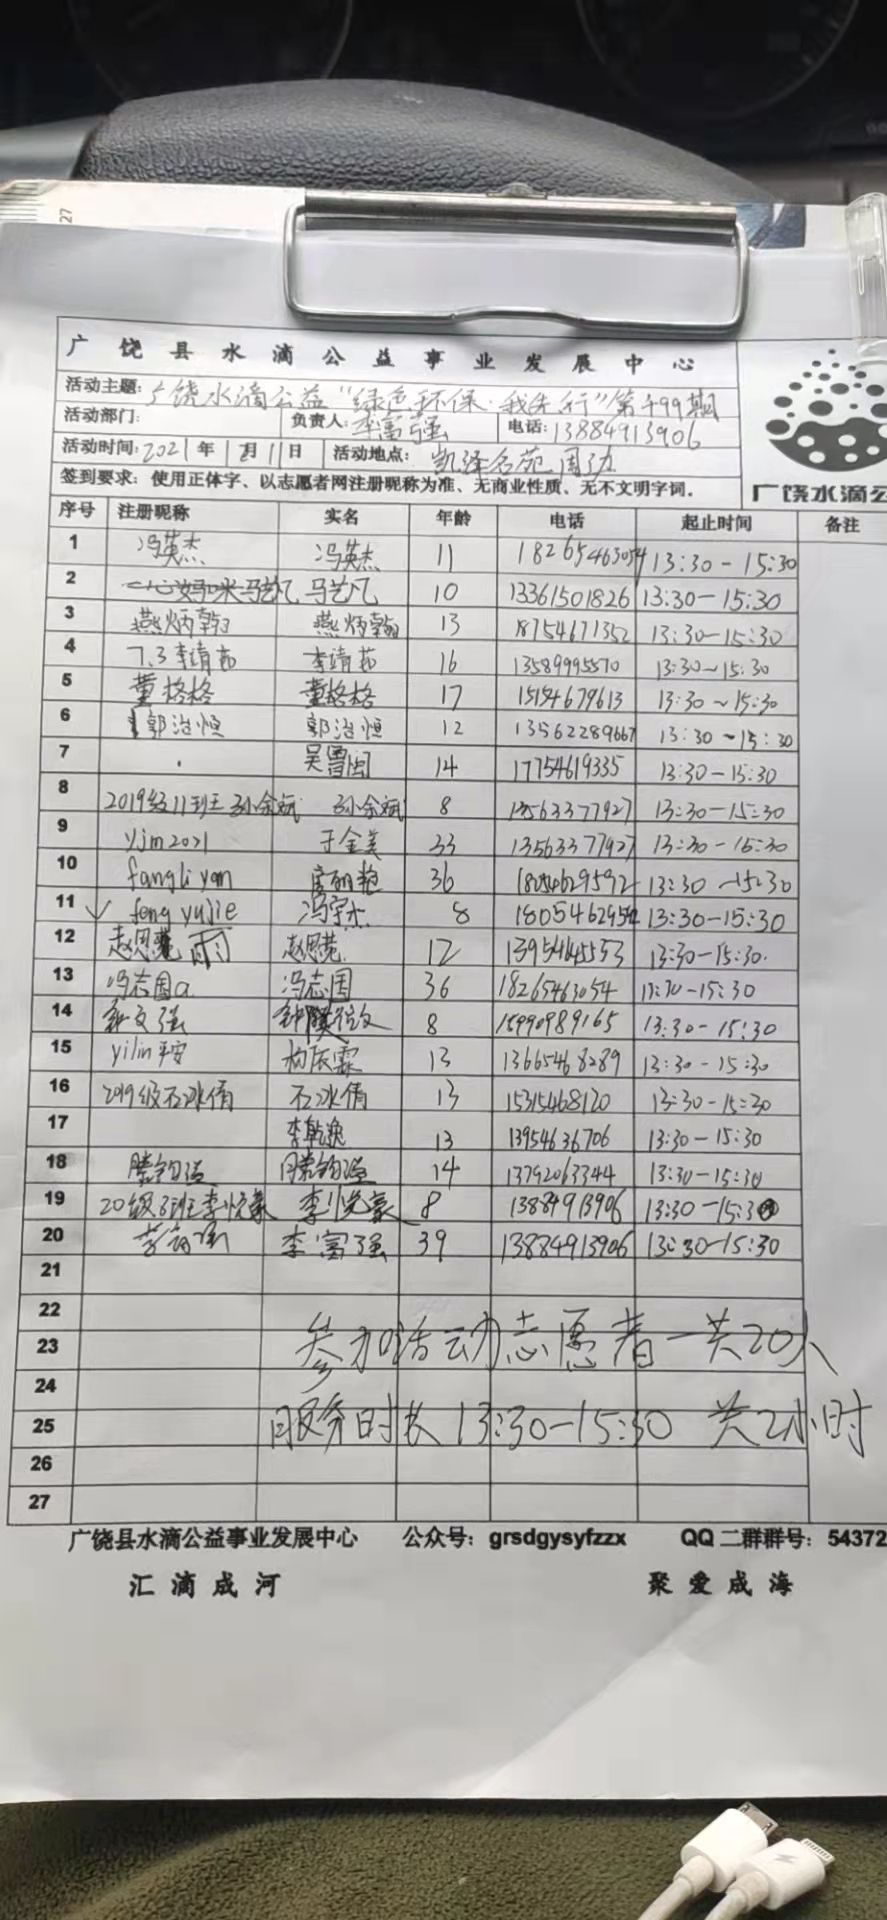 27
广饶县水滴公益事业发展中心
活动主题: 广饶水滴公益"绿色环保·我先行"第 99期
活动部门: 负责人: 李富强 电话: 13884913906
活动时间: 2021 年 12月 11日 活动地点: 凯泽名苑周边
签到要求: 使用正体字、以志愿者网注册昵称为准、无商业性质、无不文明字词.
广饶水滴公
序号 注册昵称 实名 年龄 电话 起止时间 备注
1 冯英杰 冯英杰 11 18265463054 13:30-15:30
2 马艺凡 马艺凡 10 13361501826 13:30-15:30
3 燕炳翰 燕炳翰 13 18754671352 13:30-15:30
4 7.3李靖茹 李靖茹 16 13589995570 13:30~15:30
5 董格格 董格格 17 15154679613 13:30~15:30
6 郭治恒 郭治恒 12 13562289667 13:30~15:30
7 吴曾闽 14 17754619335 13:30-15:30
8 2019级11班孙余斌 孙余斌 8 13563377927 13:30-15:30
9 yjm2021 于金美 33 13563377927 13:30-15:30
10 fangliyan 房丽艳 36 18054629592 13:30-15:30
11 feng yujie 冯宇杰 8 18054629592 13:30-15:30
12 赵恩 雨 赵恩 12 13:30-15:30
13 冯志国a 冯志国 36 18265463054 13:30-15:30
14 8 15990989165 13:30-15:30
15 yilin平安 13 13665468289 13:30-15:30
16 2019级石冰倩 石冰倩 13 15315468120 13:30-15:30
17 李乾逸 13 13954636706 13:30-15:30
18 滕 滕 14 13792063344 13:30-15:30
19 20级8班李悦豪 李悦豪 8 13884913906 13:30-15:30
20 李富强 李富强 39 13884913906 13:30-15:30
21
22
23 参加活动志愿者一共20人
24
25 服务时长13:30-15:30 共2小时
26
27
广饶县水滴公益事业发展中心 公众号: grsdgysyfzzx QQ 二群群号: 54372
汇滴成河 聚爱成海